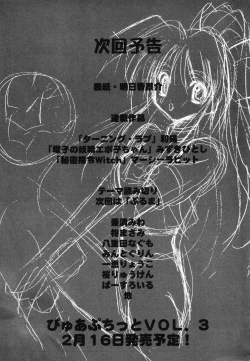 次回予告
表紙・明日香恭介
連載作品
「ターニング・ラブ」和泉
「電子の妖精エポ子ちゃん」みずきひとし
「秘密指令Witch」マーシーラビット
テーマ読み切り
次回は「ぶるま」
みわ
さみ
八蓮田なぐも
みんとぐりん
りょうこ
桜りゅうけん
ぱーすろいる
他
ぴゅあぷちっとVOL.3
2月16日発売予定！